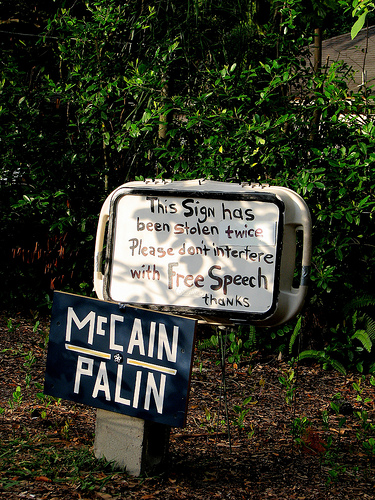 This Sign has
been stolen twice
Please don't interfere
with Free Speech
thanks
McCAIN
PALIN